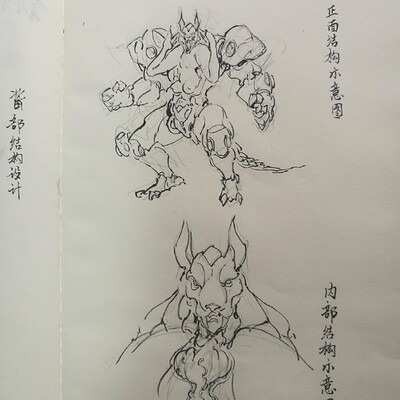 正面结构示意图
背部结构设计
内部结构示意图